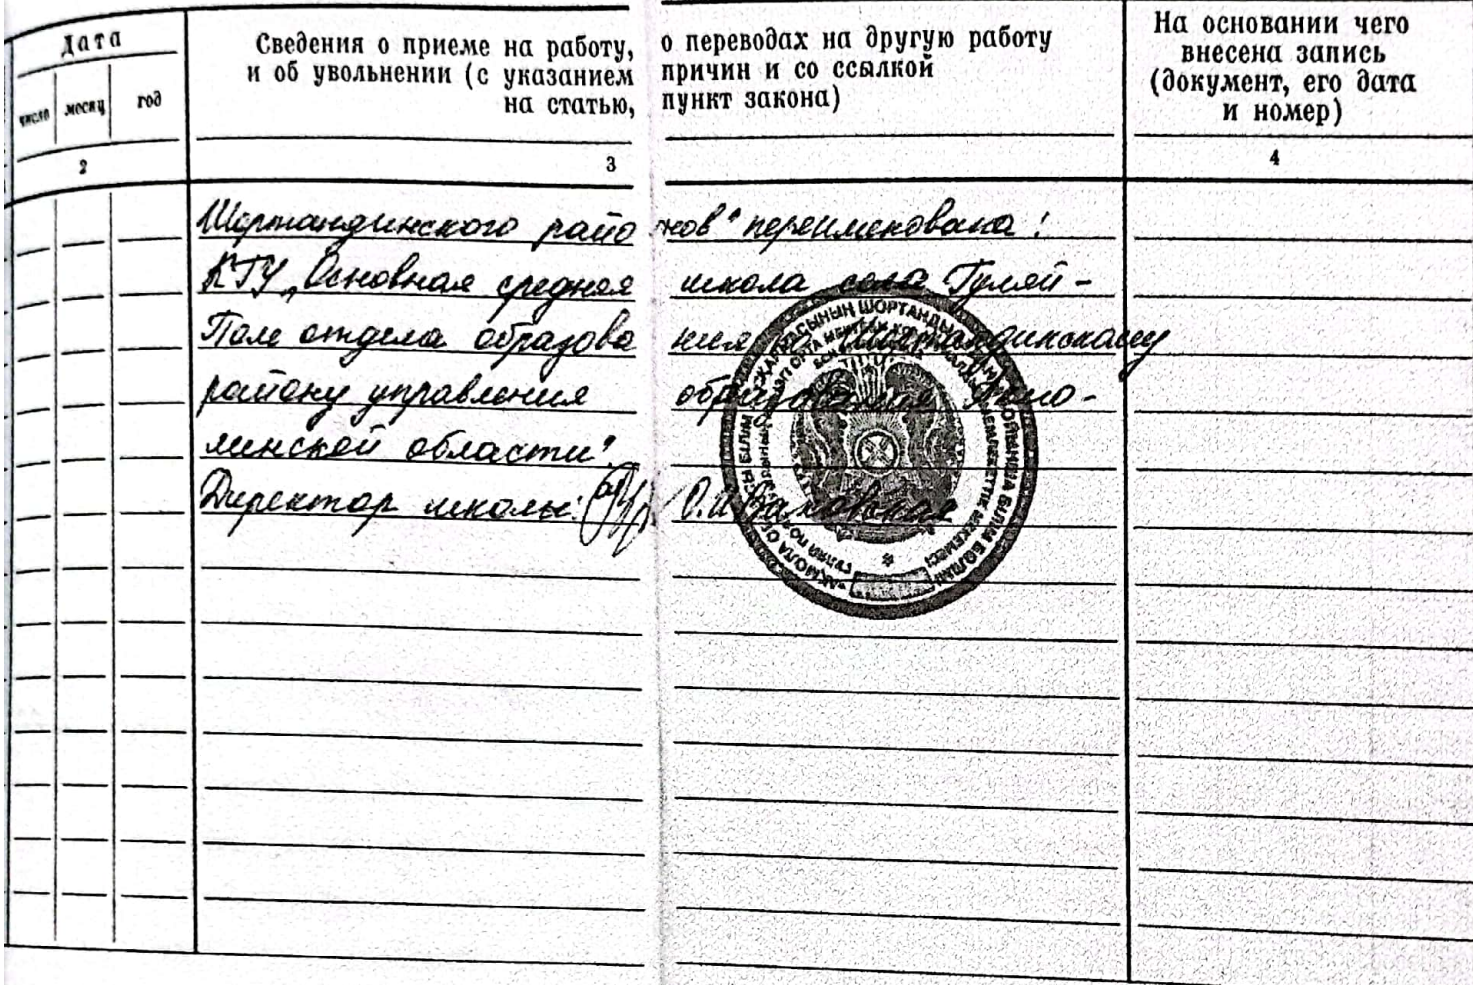 Дата
число месяц год
Сведения о приеме на работу, о переводах на другую работу
и об увольнении (с указанием причин и со ссылкой
на статью, пункт закона)
На основании чего
внесена запись
(документ, его дата
и номер)
2 3 4
Шортандинского райо нов" переименована:
КГУ „Основная средняя школа села Гуляй-
Поле отдела образова ния по Шортандинскому
району управления образования Акмо-
линской области".
Директор школы: О.И.